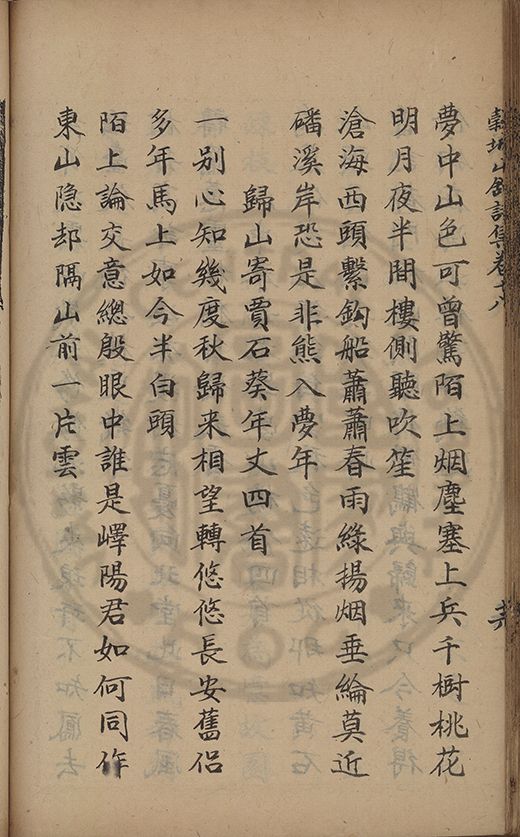 穀城山館詩集卷十八
夢中山色可曾驚陌上烟塵塞上兵千樹桃花
明月夜半間樓側聽吹笙
滄海西頭繫鈎船蕭蕭春雨綠揚烟垂綸莫近
磻溪岸恐是非熊入夢年
歸山寄賈石葵年丈四首
一别心知幾度秋歸来相望轉悠悠長安舊侣
多年馬上如今半白頭
陌上論交意總殷眼中誰是嶧陽君如何同作
東山隐却隔山前一片雲